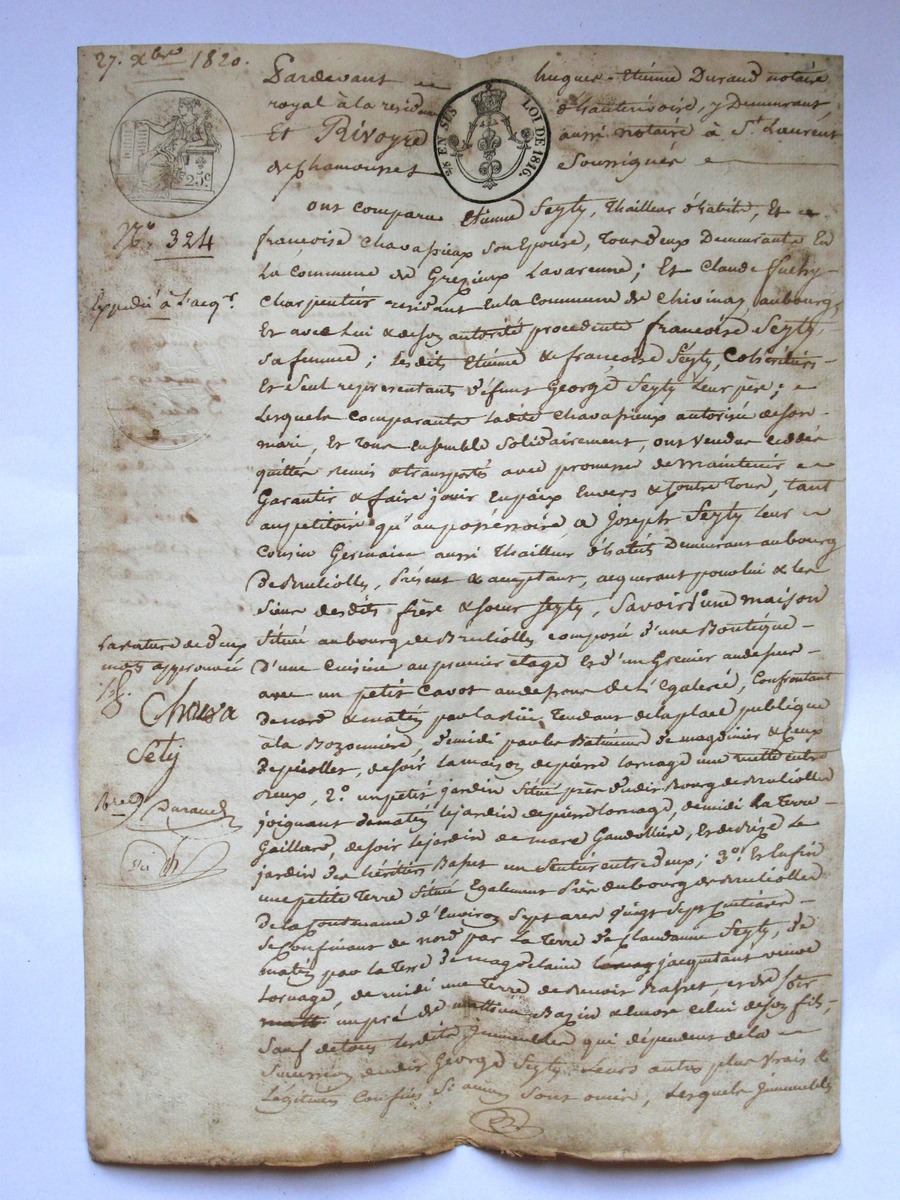 27. xbre 1820.
25c
N° 324
Expedié à l'acqr.
¼ EN SUS LOI DE 1816.
Pardevant hugues-Etienne Durand notaire
royal à la residence d'hauterivoire, y Demeurant,
Et Rivoyre aussi notaire à St Laurent
de chamousset Soussignés
ont comparu Etienne Seyty, thailleur d'habits, Et
françoise Chavassieux son Epouse, Tous deux Demeurants En
La Commune de Grezieux Lavarenne; Et Claude
Charpentier residant En la Commune de Chivinay aubourg
Et avec Lui & de son autorité procedente françoise Seyty
sa femme; lesdits Etienne & françoise Seyty, Cohéritiers
Et Seuls representants défunt George Seyty leur père;
Lesquels Comparants ladite Chavassieux autorisée de son
mari, Et Tous Ensemble Solidairement, ont Vendus ceddés
quittés remis & transportés avec promesse de maintenir
Garantir & faire jouir En paix Envers & Contre Tous, tant
au petitoire qu'au possessoire a Joseph Seyty leur
Cousin Germain aussi thailleur d'habits Demeurant au bourg
de Brullioles, Présent & acceptant, acquerant pour lui & les
siens desdits frère & soeur Seyty, Savoir 1° une maison
Située au bourg de Brulliolles composée d'une Boutique
D'une Cuisine au premier étage Et d'un Grenier audessus
avec un petit Cavot audessous de l'Egalerie, Confrontant
de nord & matin par la Rüe Tendant de la place publique
à la Bozonnière, de midi par les Batiments de
de soir la maison de pierre Lornage une ruette entre
deux, 2° un petit jardin Situé près dudit Bourg de Brulliolles
joignant de matin le jardin de pierre Lornage, de midi la Terre
Gaillard, de soir le jardin de marc Gaudollière, Et de Bize Le
jardin des héritiers Basset un Sentier entre deux; 3° Et Enfin
une petite Terre Située Egalement Près du bourg de Brulliolles
de la Contenance d'Environ Sept ares Vingt Sept Centiares
Se Confinant de nord par La Terre de Claudanne Seyty, de
matin par la Terre de magdelaine jacquetant veuve
Lornage, de midi une Terre de Benoit Basset, et de soir
un pré de matthieu Bazin & encore celui de son fils,
Sauf de tous lesdits Immeubles qui dépendent de la
Succession dudit George Seyty Leurs autres plus Vrais &
Légitimes Confins Si aucun Sont omis, Lesquels Immeubles
La rature de deux
mots approuvée
Chavassi
Sety
Durand